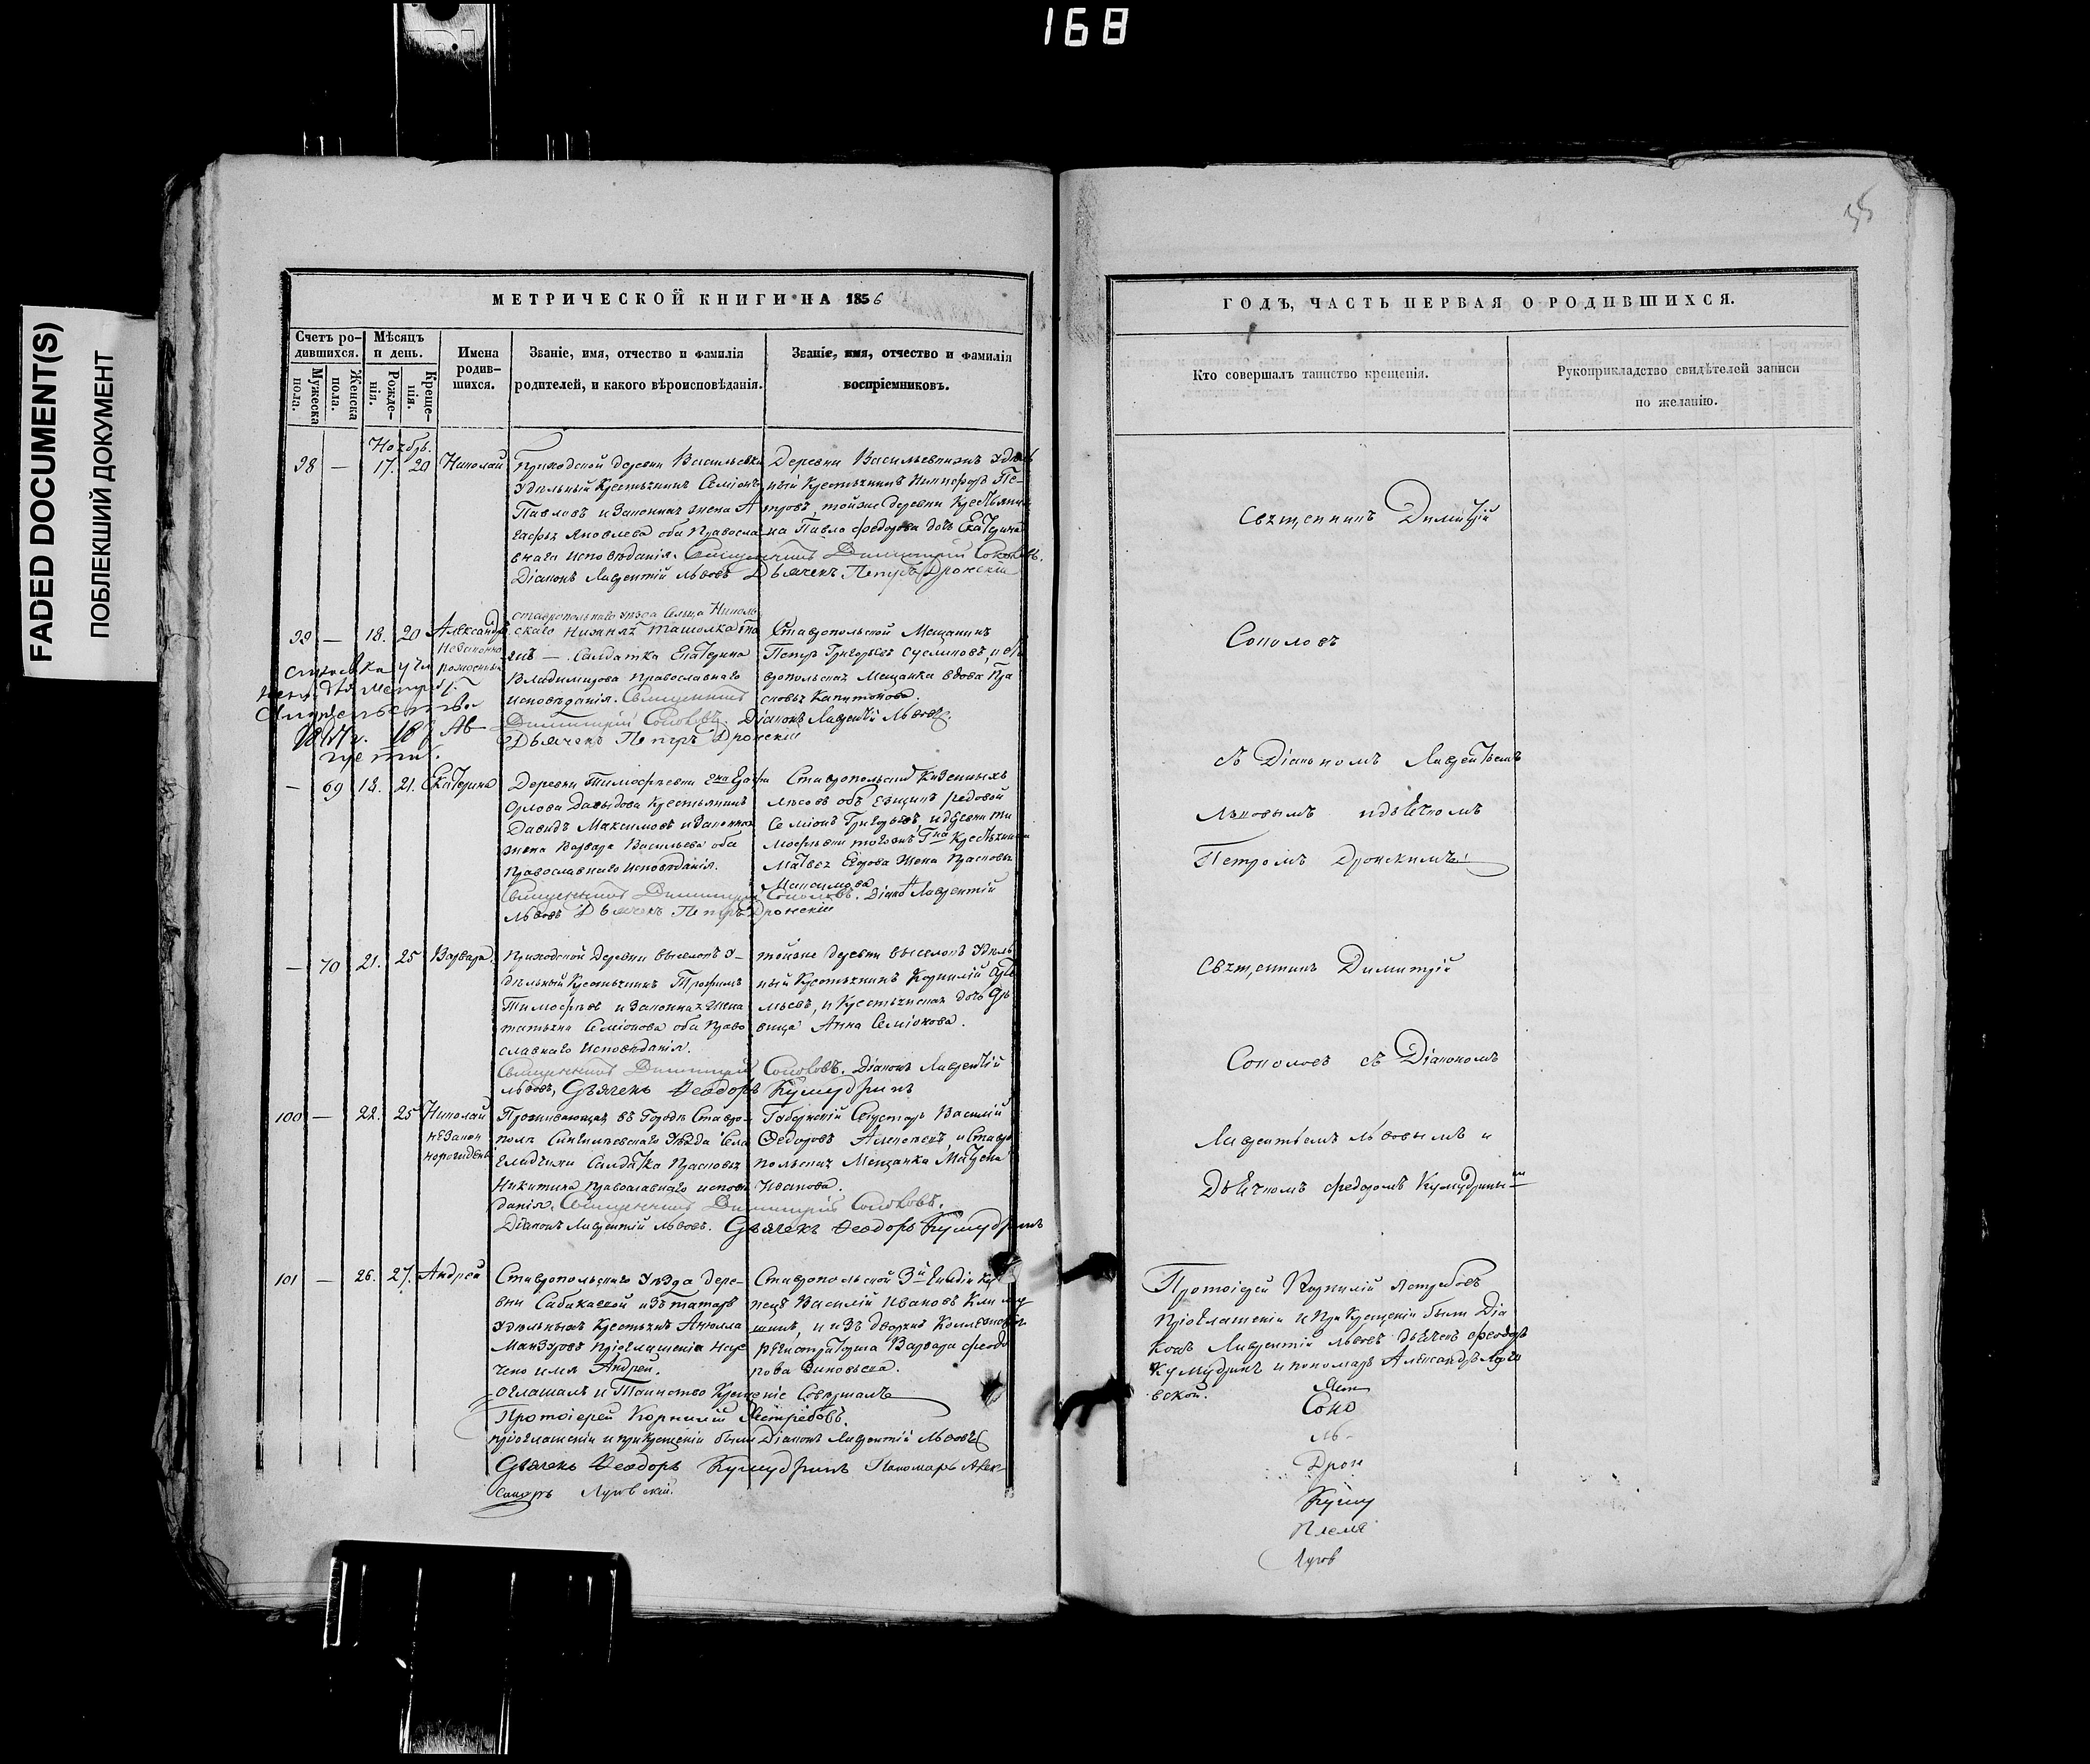 168
FADED DOCUMENT(S)
ПОБЛЕКШИЙ ДОКУМЕНТ
МЕТРИЧЕСКОЙ КНИГИ НА 1856
Счетъ ро-
дившихся.
Мужеска
пола.
Женска
пола.
Мѣсяцъ
и день.
Рожде-
нія.
Креще-
нія.
Имена
родив-
шихся.
Званіе, имя, отчество и фамилія
родителей, и какого вѣроисповѣданія.
Званіе, имя, отчество и фамилія
воспріемниковъ.
Ноябрь.
98 — 17. 20 Николай
Приходской деревни Васильевки
Удѣльный Крестьянинъ Семіонъ
Павловъ и Законная жена А
гафья Яковлева оба Правосла-
внаго исповѣданія. Священникъ Димитрій Соколовъ.
Діаконъ Лаврентій Львовъ Дьячекъ Петръ Дронскій
Деревни Васильевки Удѣль
ный Крестьянинъ Никифоръ Пе-
тровъ, тойже деревни Крестьяни
на Павла Федорова дочь Екатерина
99 — 18. 20 Александръ
Незаконно
рожденный
Ставропольскаго уѣзда Сельца Николь
скаго
Солдатка Екатерина
Владимирова Православнаго
исповѣданія. Священникъ
Димитрій Соколовъ. Діаконъ Лаврентій Львовъ.
Дьячекъ Петръ Дронскій
Ставропольской Мещанинъ
Петръ Григорьевъ
вропольская Мещанка вдова Пра
сковья Капитонова.
— 69 18. 21. Екатерина
Деревни Тимофѣевки
Орлова Давыдова Крестьянинъ
Давидъ Максимовъ и законная
жена Варвара Васильева оба
Православнаго исповѣданія.
Священникъ Димитрій Соколовъ. Діаконъ Лаврентій
Львовъ Дьячекъ Петръ Дронскій
Ставропольскихъ Казенныхъ
лѣсовъ объѣзщикъ рядовой
Семіонъ Григорьевъ, и деревни Ти
мофѣевки
Матвея Егорова Жена Прасковья
Максимова
— 70 21. 25 Варвара.
Приходской Деревни выселокъ У-
дѣльный Крестьянинъ Трофимъ
Тимофѣевъ и Законная Жена
Татьяна Семіонова оба Право
славнаго исповѣданія.
Священникъ Димитрій Соколовъ. Діаконъ Лаврентій
Львовъ, Дьячекъ Феодоръ Кумудринъ
тойже деревни выселокъ Удѣль
ный Крестьянинъ Корнилій
и Крестьянская дочь Дѣ
вица Анна Семіонова.
100 — 22. 25 Николай
незакон
Проживающая въ Городѣ Ставро-
полѣ Симбилѣевскаго Уѣзда Села
Солдатка Прасковья
Никитина православнаго исповѣ
данія. Священникъ Димитрій Соколовъ.
Діаконъ Лаврентій Львовъ. Дьячекъ Феодоръ Кумудринъ
Губернскій Секретарь Василій
Федоровъ Алексеевъ, и Ставро
польская Мещанка Матрена
Иванова.
101 — 26. 27. Андрей
Ставропольскаго Уѣзда Дере-
вни Сабакаевой изъ татаръ
Удѣльныхъ Крестьянъ
Мансуровъ
чено имя Андрей.
Оглашалъ и Таинство Крещеніе Совершалъ
Протоіерей Корнилій Ястребовъ.
при оглашеніи и при крещеніи были Діаконъ Лаврентій Львовъ
Дьячекъ Феодоръ Кумудринъ Пономарь Алек-
сандръ Луговскій.
Ставропольской 3й Гильдіи Ку
пецъ Василій Ивановъ Кли
и изъ дворянъ Коллежскаго
регистратора Варвара Феодо
рова Зиновьева.
ГОДЪ, ЧАСТЬ ПЕРВАЯ О РОДИВШИХСЯ.
Кто совершалъ таинство крещенія.
Рукоприкладство свидѣтелей записи
по желанію.
Священникъ Димитрій
Соколовъ
съ Діакономъ Лаврентьемъ
Львовымъ и дьячкомъ
Петромъ Дронскимъ
Священникъ Димитрій
Соколовъ съ Діакономъ
Лаврентьемъ Львовымъ и
Дьячкомъ Федоромъ Кумудринымъ
Протоіерей Корнилій Ястребовъ
При оглашеніи и При Крещеніи были Діа
конъ Лаврентій Львовъ дьячекъ Феодоръ
Кумудринъ и пономарь Александръ Луго
вской.
Яст
Соко
Ль-
Дрон
Куму
Племя
Лугов